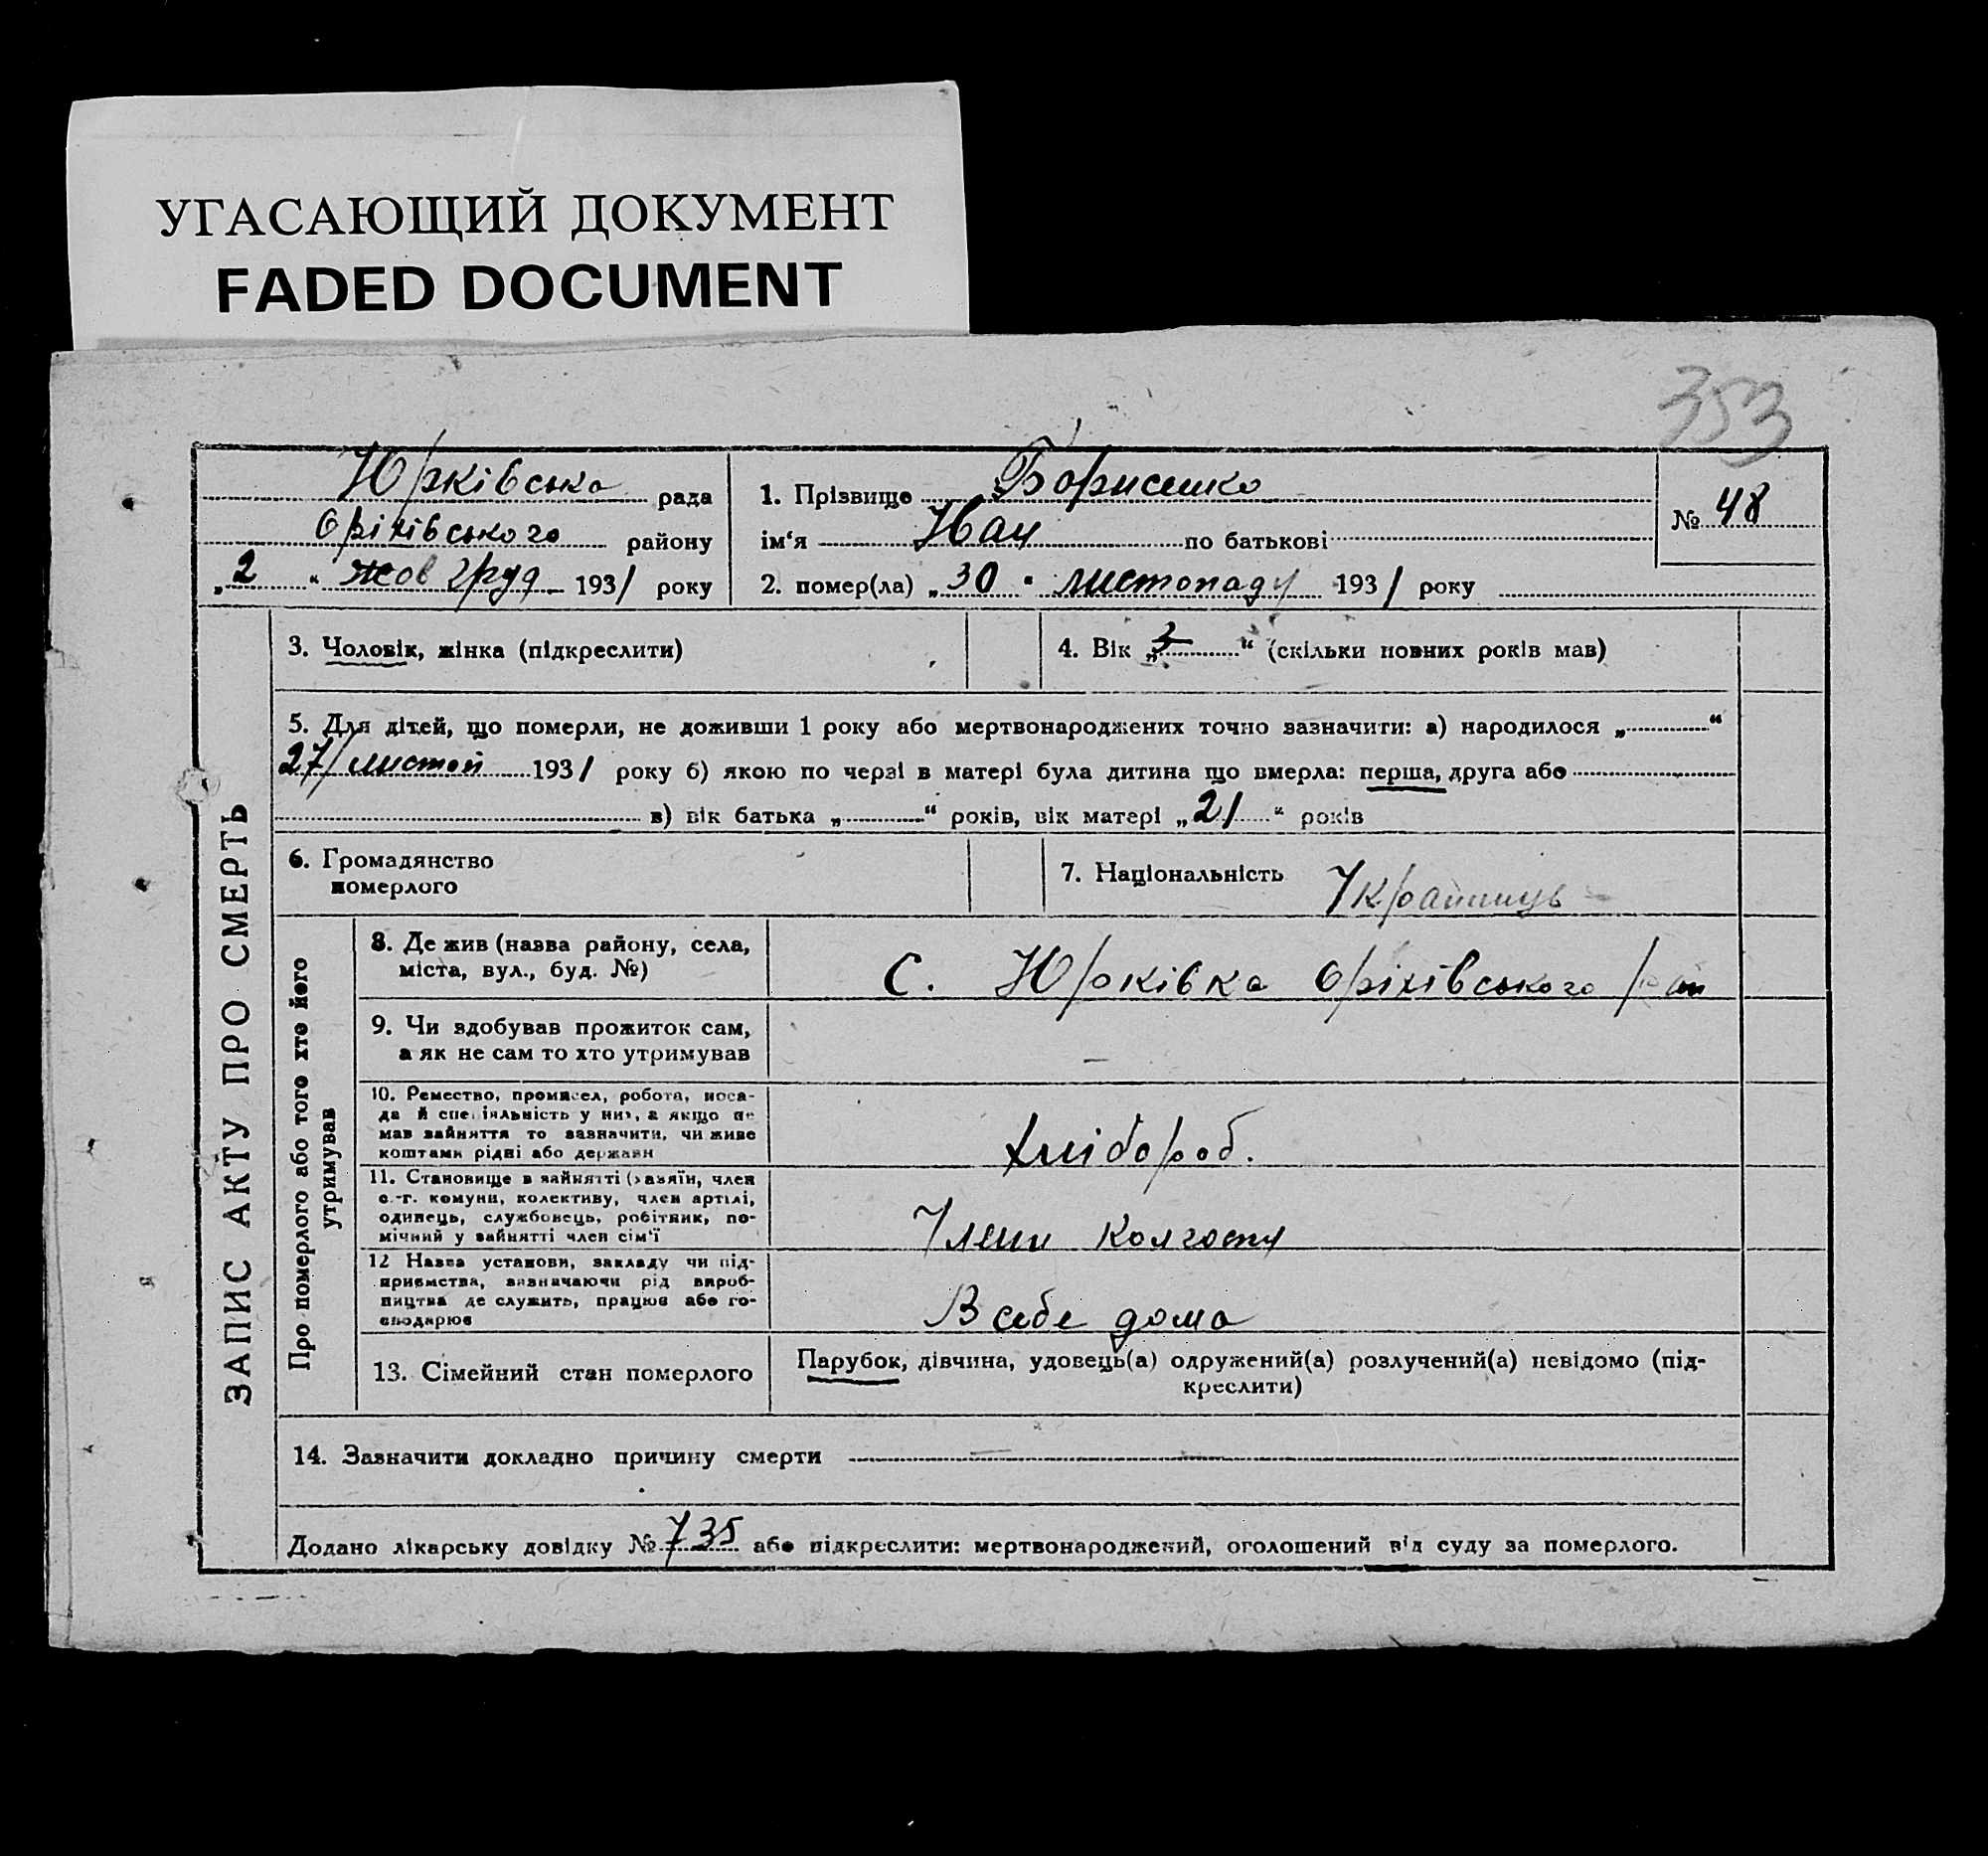 УГАСАЮЩИЙ ДОКУМЕНТ
FADED DOCUMENT
353
Юрківська рада
Оріхівського району
„2“ жов груд 1931 року
1. Прізвище Борисенко
ім‘я по батькові
2. помер(ла) „30“ листопаду 1931 року
№ 48
ЗАПИС АКТУ ПРО СМЕРТЬ
3. Чоловік, жінка (підкреслити)
4. Вік „3“ (скільки повних років мав)
5. Для дітей, що померли, не доживши 1 року або мертвонароджених точно зазначити: а) народилося „ “
27/ листоп 1931 року б) якою по черзі в матері була дитина що вмерла: перша, друга або
в) вік батька „ “ років, вік матері „21“ років
6. Громадянство
померлого
7. Національність Українець
Про померлого або того хто його
утримував
8. Де жив (назва району, села,
міста, вул., буд. №)
С. Юрківка Оріхівського рай
9. Чи здобував прожиток сам,
а як не сам то хто утримував
–
10. Ремество, промисел, робота, поса-
да й спеціяльність у них, а якщо не
мав зайняття то зазначити, чи живе
коштами рідні або держави
хлібороб.
11. Становище в зайнятті (хазяїн, член
с.-г. комуни, колективу, член артілі,
одинець, службовець, робітник, по-
мічний у зайнятті член сім‘ї
Член колгоспу
12 Назва установи, закладу чи під-
приємства, зазначаючи рід вироб-
ництва де служить, працює або го-
сподарює
В себе дома
13. Сімейний стан померлого
Парубок, дівчина, удовець(а) одружений(а) розлучений(а) невідомо (під-
креслити)
14. Зазначити докладно причину смерти
Додано лікарську довідку № 735 або підкреслити: мертвонароджений, оголошений від суду за померлого.